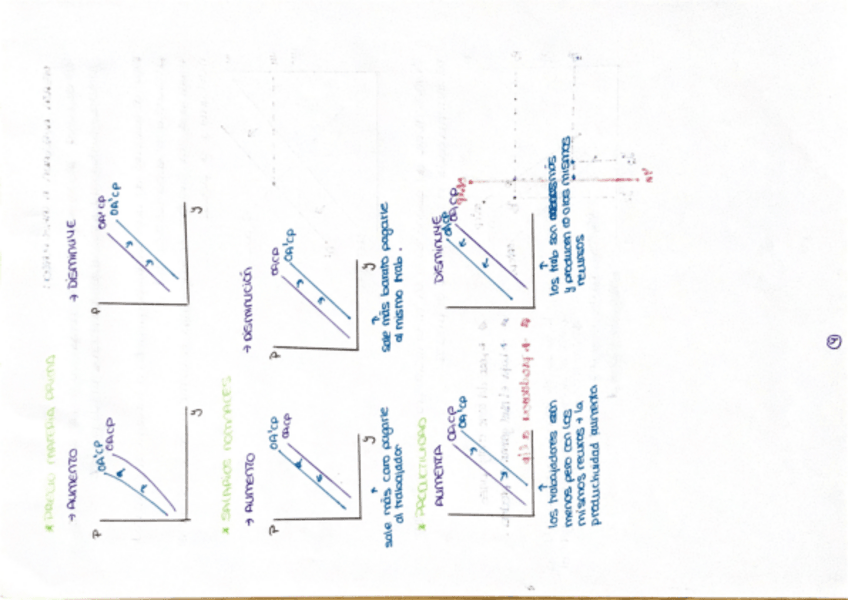 * PRECIO MATERIA PRIMA
→ AUMENTO
→ DISMINUYE
P
OA'CP
OACP
y
P
OACP
OA'CP
y
* SALARIOS NOMINALES
→ AUMENTO
→ DISMINUCIÓN
P
OA'CP
OACP
y
P
OACP
OA'CP
y
sale más caro pagarle
al trabajador
sale más barato pagarle
al mismo trab.
* PRODUCTIVIDAD
AUMENTA
DISMINUYE
OACP
OA'CP
OA'CP
OACP
los trabajadores son
menos pero con los
mismos recursos + la
productividad aumenta
los trab son más
y producen a los mismos
recursos
4